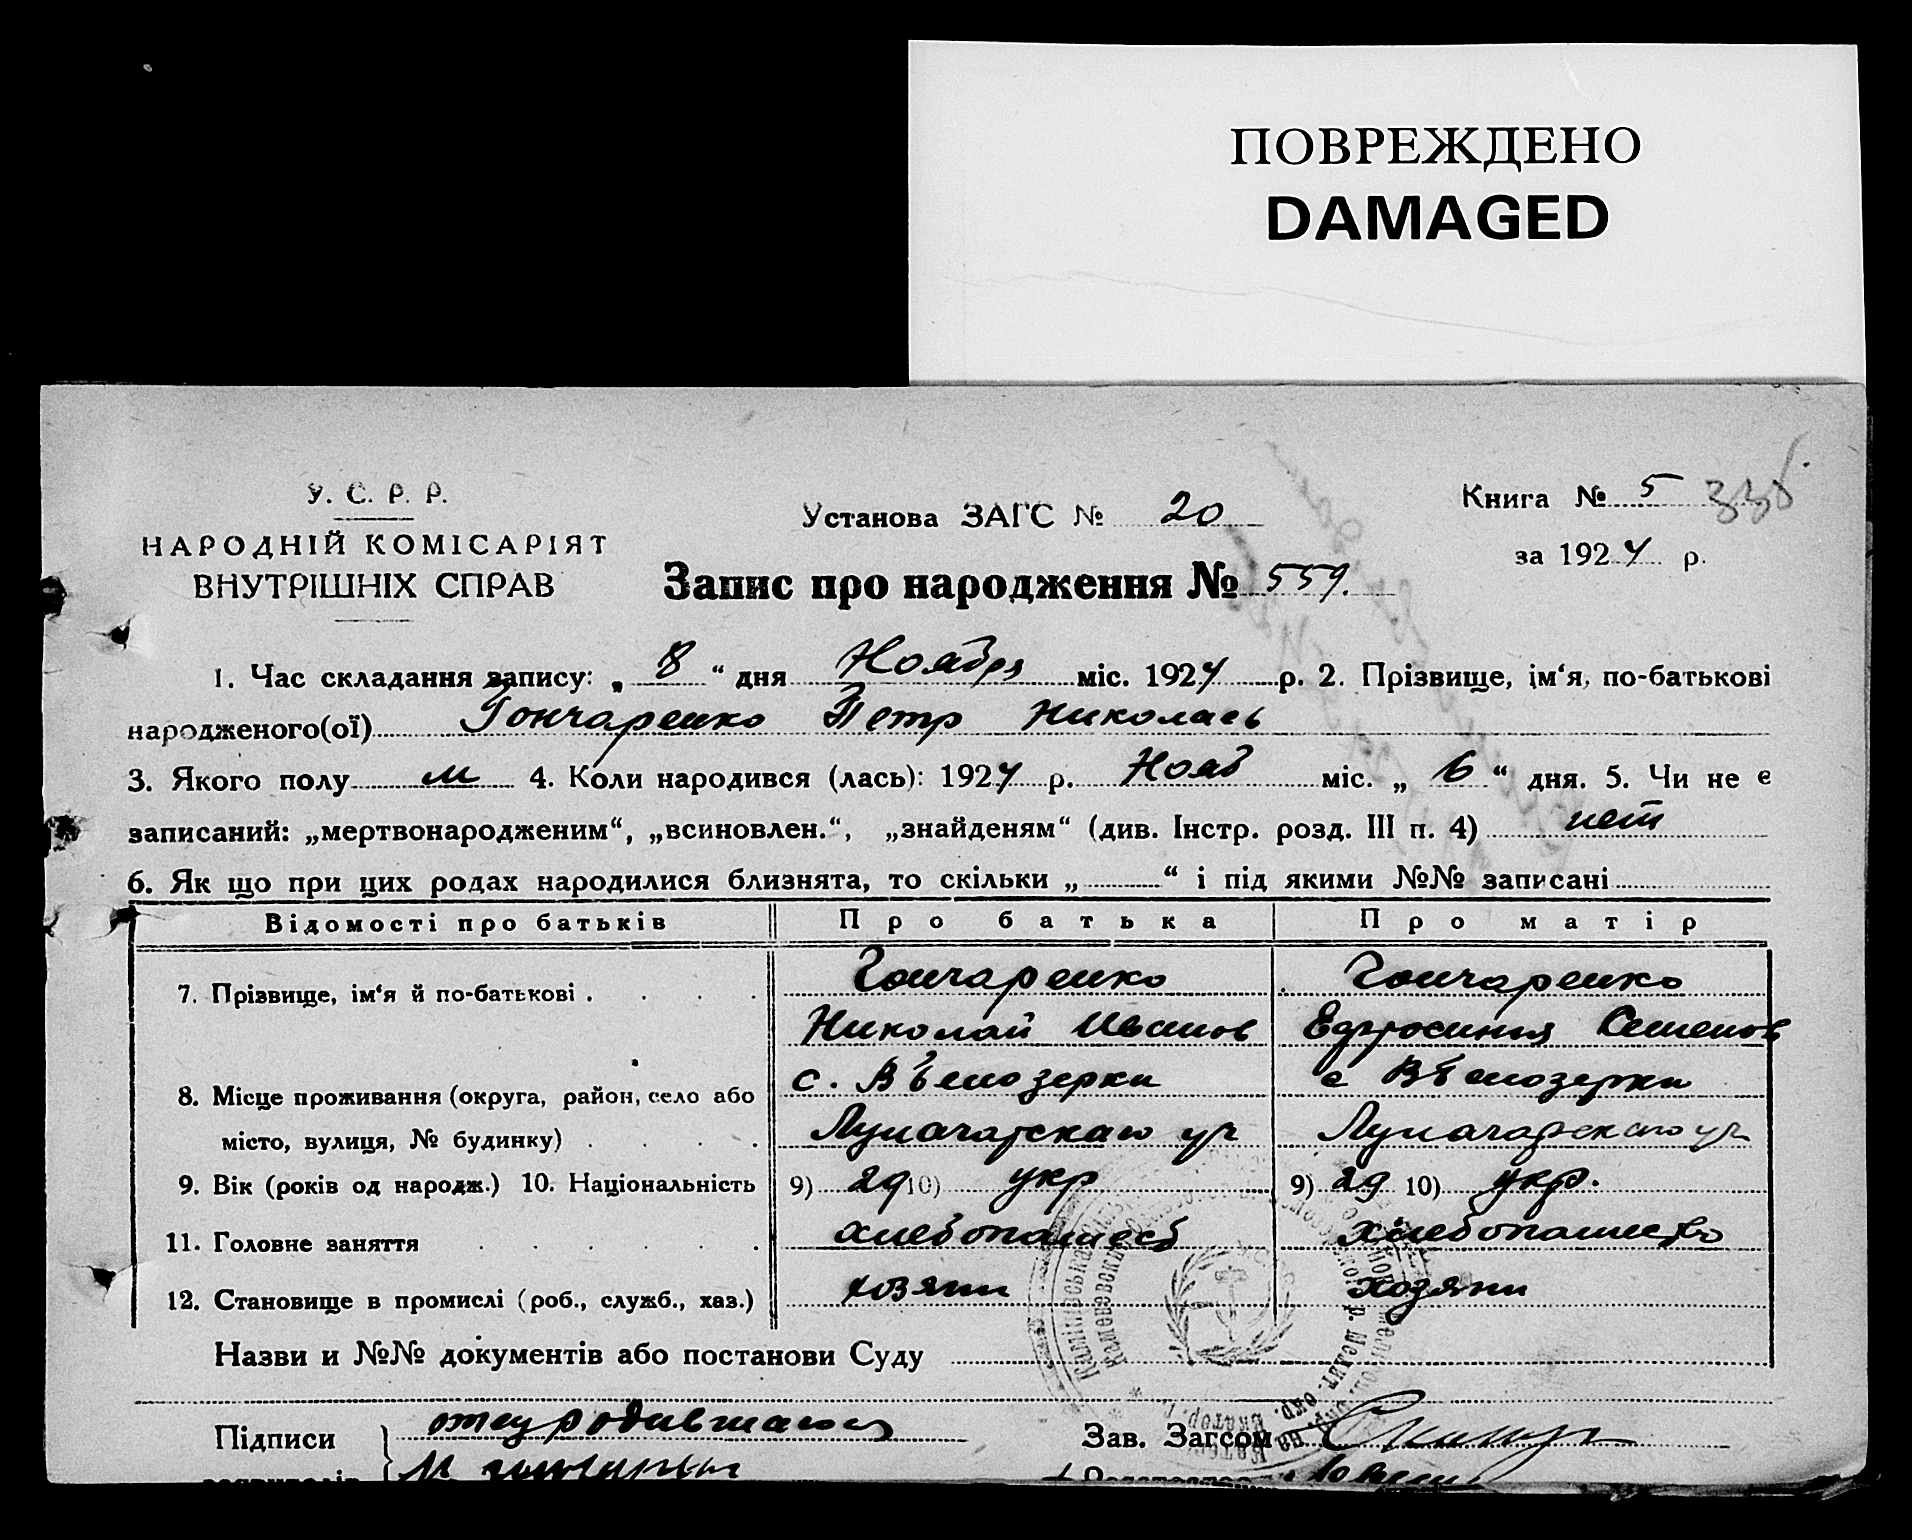 ПОВРЕЖДЕНО
DAMAGED
У. С. Р. Р.
НАРОДНІЙ КОМІСАРІЯТ
ВНУТРІШНІХ СПРАВ
Установа ЗАГС № 20
Книга № 5 336
за 1924 р.
Запис про народження № 559.
1. Час складання запису: „ 8 “ дня Ноября міс. 1924 р. 2. Прізвище, ім‘я, по-батькові
народженого(ої) Гончаренко Петр Николаев
3. Якого полу м 4. Коли народився (лась): 1924 р. Нояб міс. „ 6 “ дня. 5. Чи не є
записаний: „мертвонародженим“, „всиновлен.“, „знайденям“ (див. Інстр. розд. III п. 4) нет
6. Як що при цих родах народилися близнята, то скільки „ “ і під якими №№ записані
Відомості про батьків Про батька Про матір
7. Прізвище, ім‘я й по-батькові . Гончаренко Гончаренко
Николай Иванов Ефросиния Семенов
8. Місце проживання (округа, район, село або с. Вбелозерки с Вбелозерки
місто, вулиця, № будинку) Луначарскаго ул Луначарскаго ул
9. Вік (років од народж.) 10. Національність 9) 29 10) укр 9) 29 10) укр.
11. Головне заняття хлебопашесб хлебопашество
12. Становище в промислі (роб., служб., хаз.) хозяин хозяин
Назви и №№ документів або постанови Суду
Підписи отец родившагося Зав. Загсом